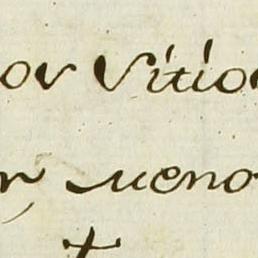 or Vitio
n, meno
t